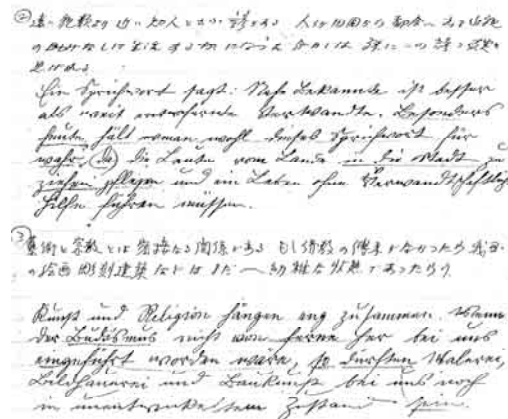 ② 遠い親類より近い知人という諺がある 人々が田園から都会へ出て
なしに生活する
である
Ein Sprichwort sagt: Nahe Bekannte ist besser
als weit entfernte Verwandte. Besonders
heute hält man wohl dieses Sprichwort für
wahr, da die Leute vom Lande in die Stadt zu
ziehen pflegen und ein Leben ohne Verwandtschaftliche
Hilfe führen müssen.
③ 藝術と宗教とは密接なる関係がある もし佛教の傳来がなかったら我国
の絵画彫刻建築などはまだ 幼稚な状態であったろう
Kunst und Religion hängen eng zusammen. Wenn
der Budismus nicht von ferne her bei uns
eingeführt worden wäre, so dürften Malerei,
Bildhauerei und Baukunst bei uns noch
in unentwickeltem Zustand sein.